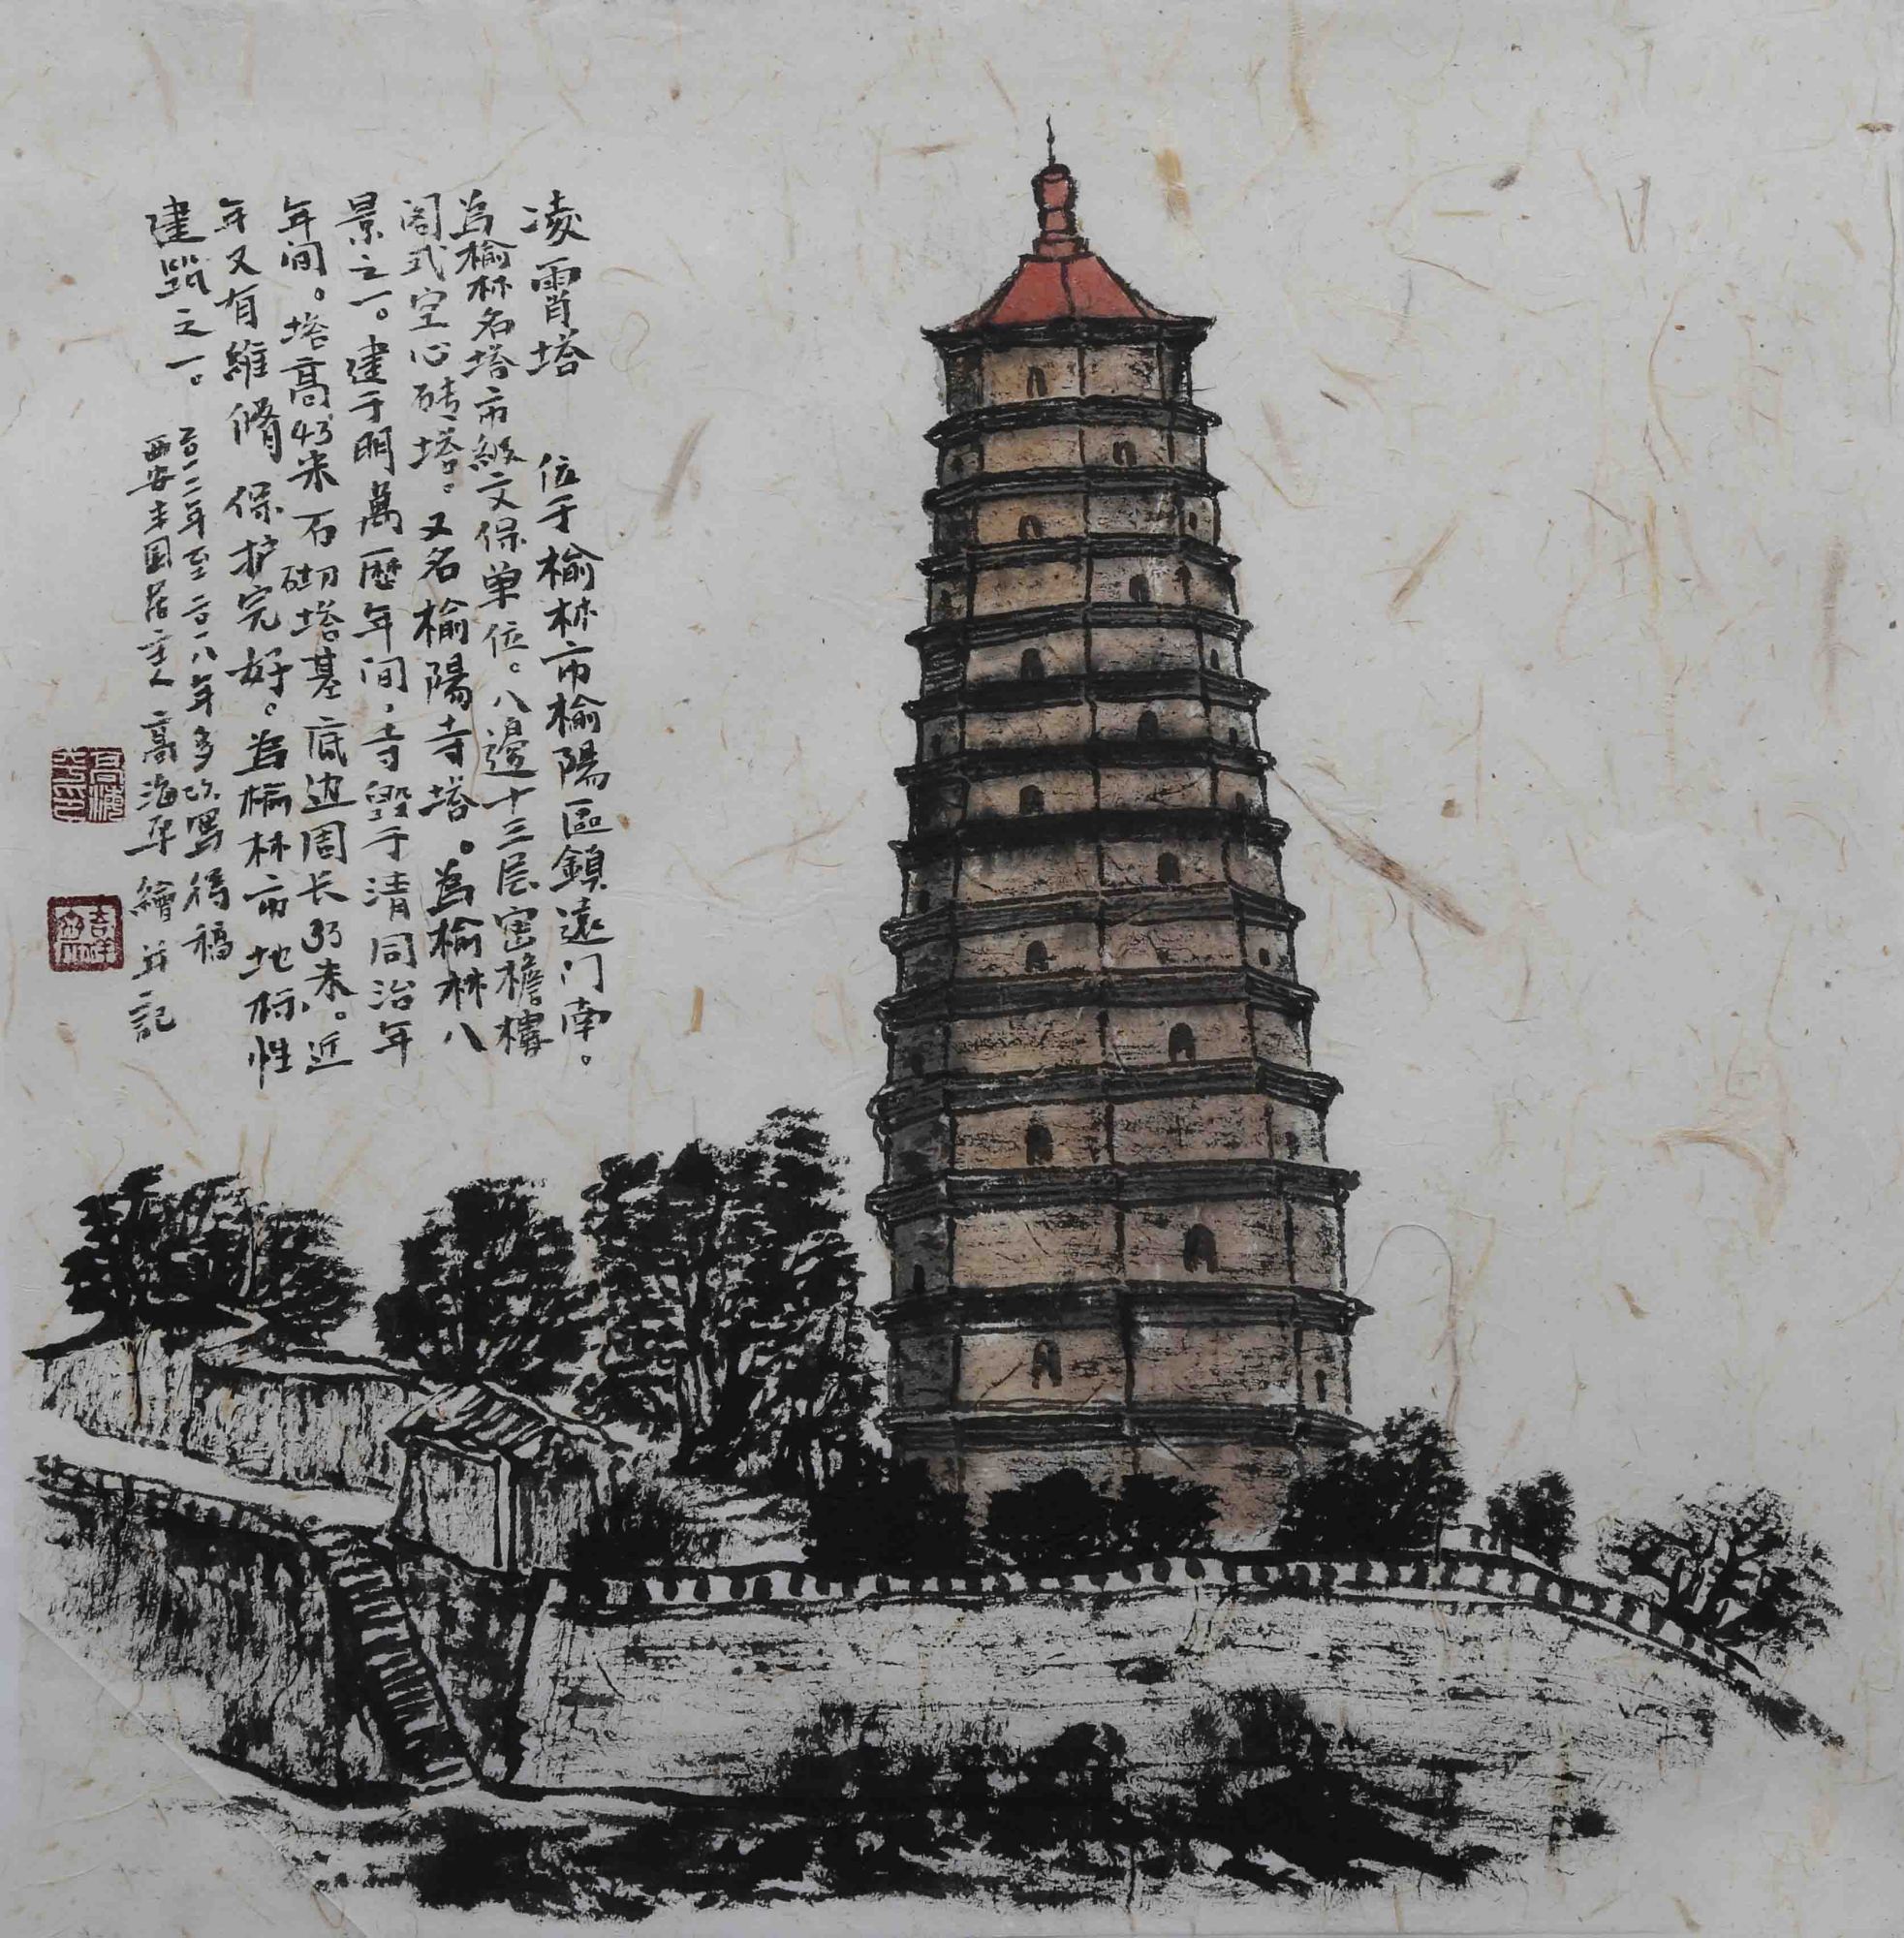 凌霄塔 位于榆林市榆陽區鎮遠门南。
爲榆林名塔市級文保單位。八邊十三层密檐樓
阁式空心砖塔。又名榆陽寺塔。爲榆林八
景之一。建于明萬歷年间，寺毁于清同治年
年间。塔高43米石砌塔基底边周长33米。近
年又有維脩保护完好。爲榆林市地标性
建筑之一。
二〇一二年至二〇一八年多次寫得稿
西安丰园居主人高海平繪并記